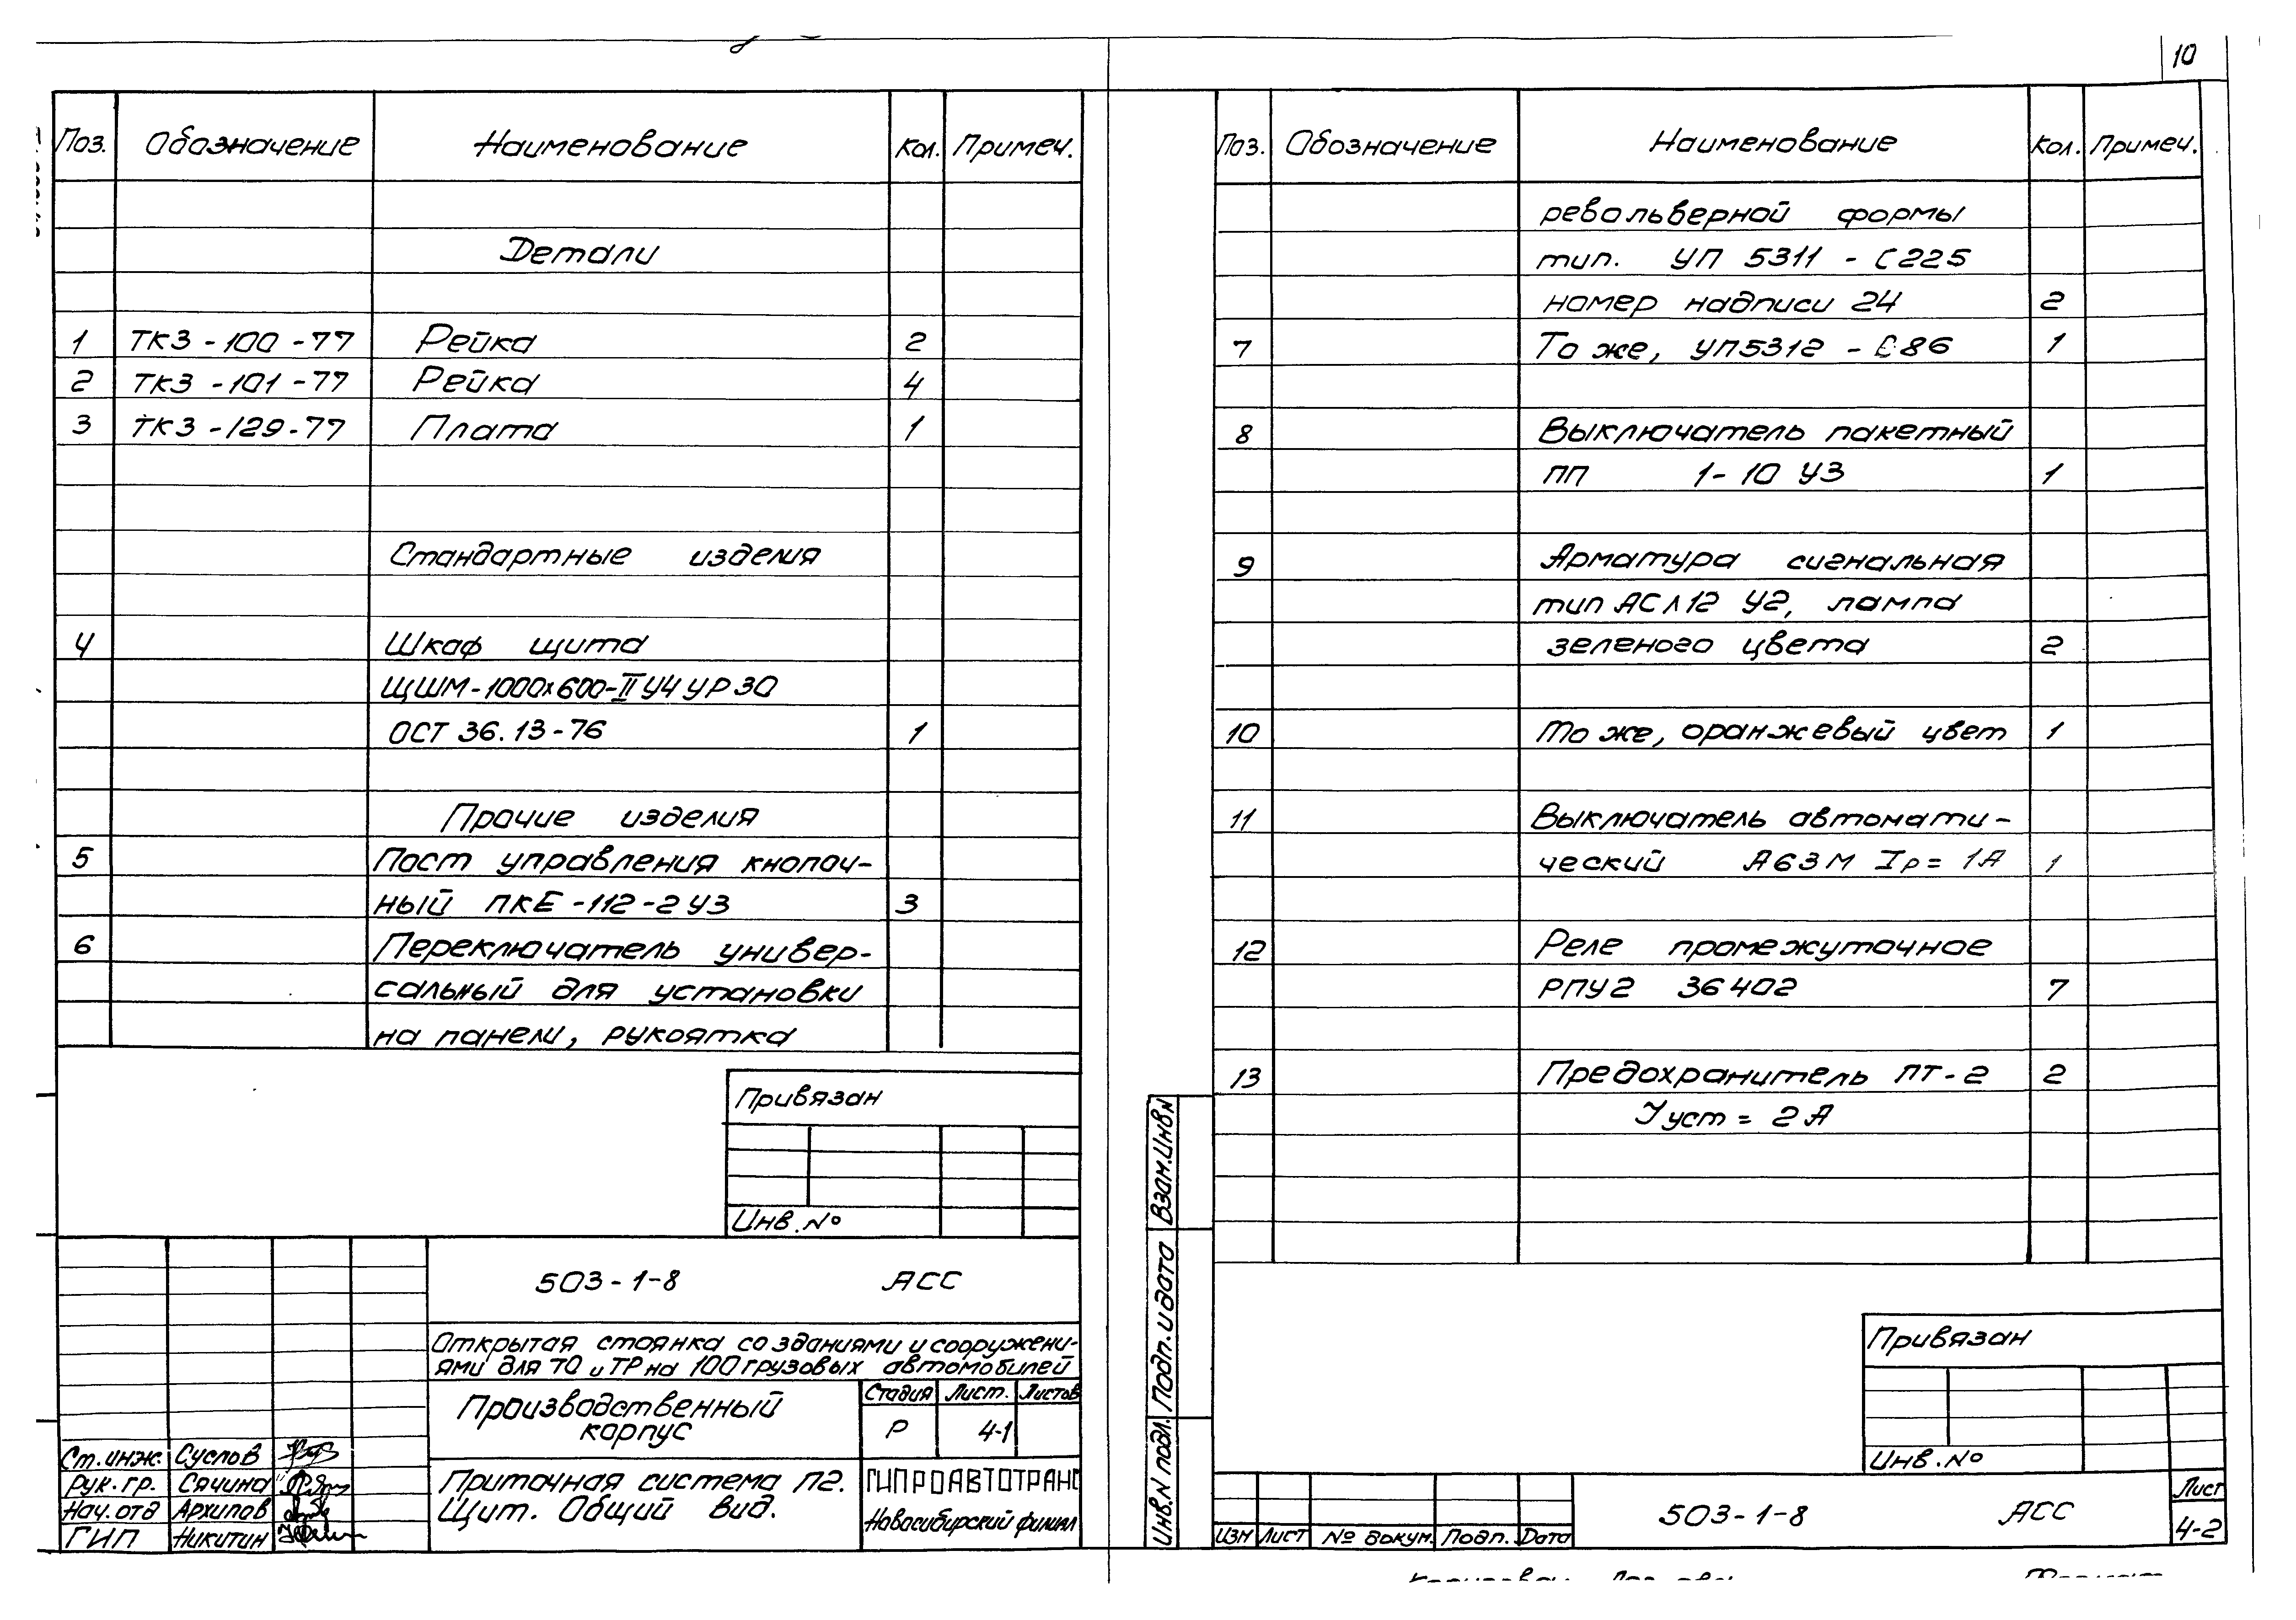 10
Поз. Обозначение Наименование Кол. Примеч.
Детали
1 ТК3-100-77 Рейка 2
2 ТК3-101-77 Рейка 4
3 ТК3-129-77 Плата 1
Стандартные изделия
4 Шкаф щита
ЩШМ-1000х600-II У4 УР30
ОСТ 36.13-76 1
Прочие изделия
5 Пост управления кнопоч-
ный ПКЕ-112-2 У3 3
6 Переключатель универ-
сальный для установки
на панели, рукоятка
Привязан
Инв.№
503-1-8 АСС
Открытая стоянка со зданиями и сооружени-
ями для ТО и ТР на 100 грузовых автомобилей
Производственный
корпус
Стадия Лист. Листов
Р 4-1
Приточная система П2.
Щит. Общий вид.
ГИПРОАВТОТРАНС
Новосибирский филиал
Ст.инж. Суслов
Рук.гр. Сячина
Нач.отд Архипов
ГИП Никитин
Поз. Обозначение Наименование Кол. Примеч.
револьверной формы
тип. УП 5311-С225
номер надписи 24 2
7 То же, УП5312-С86 1
8 Выключатель пакетный
ПП 1-10 У3 1
9 Арматура сигнальная
тип АСЛ12 У2, лампа
зеленого цвета 2
10 То же, оранжевый цвет 1
11 Выключатель автомати-
ческий А63М Iр=1А 1
12 Реле промежуточное
РПУ2 36402 7
13 Предохранитель ПТ-2 2
Iуст = 2А
Взам.Инв.N
Подп.и дата
Инв.N подл.
Привязан
Инв.№
Изм Лист № докум. Подп. Дата
503-1-8 АСС
Лист
4-2